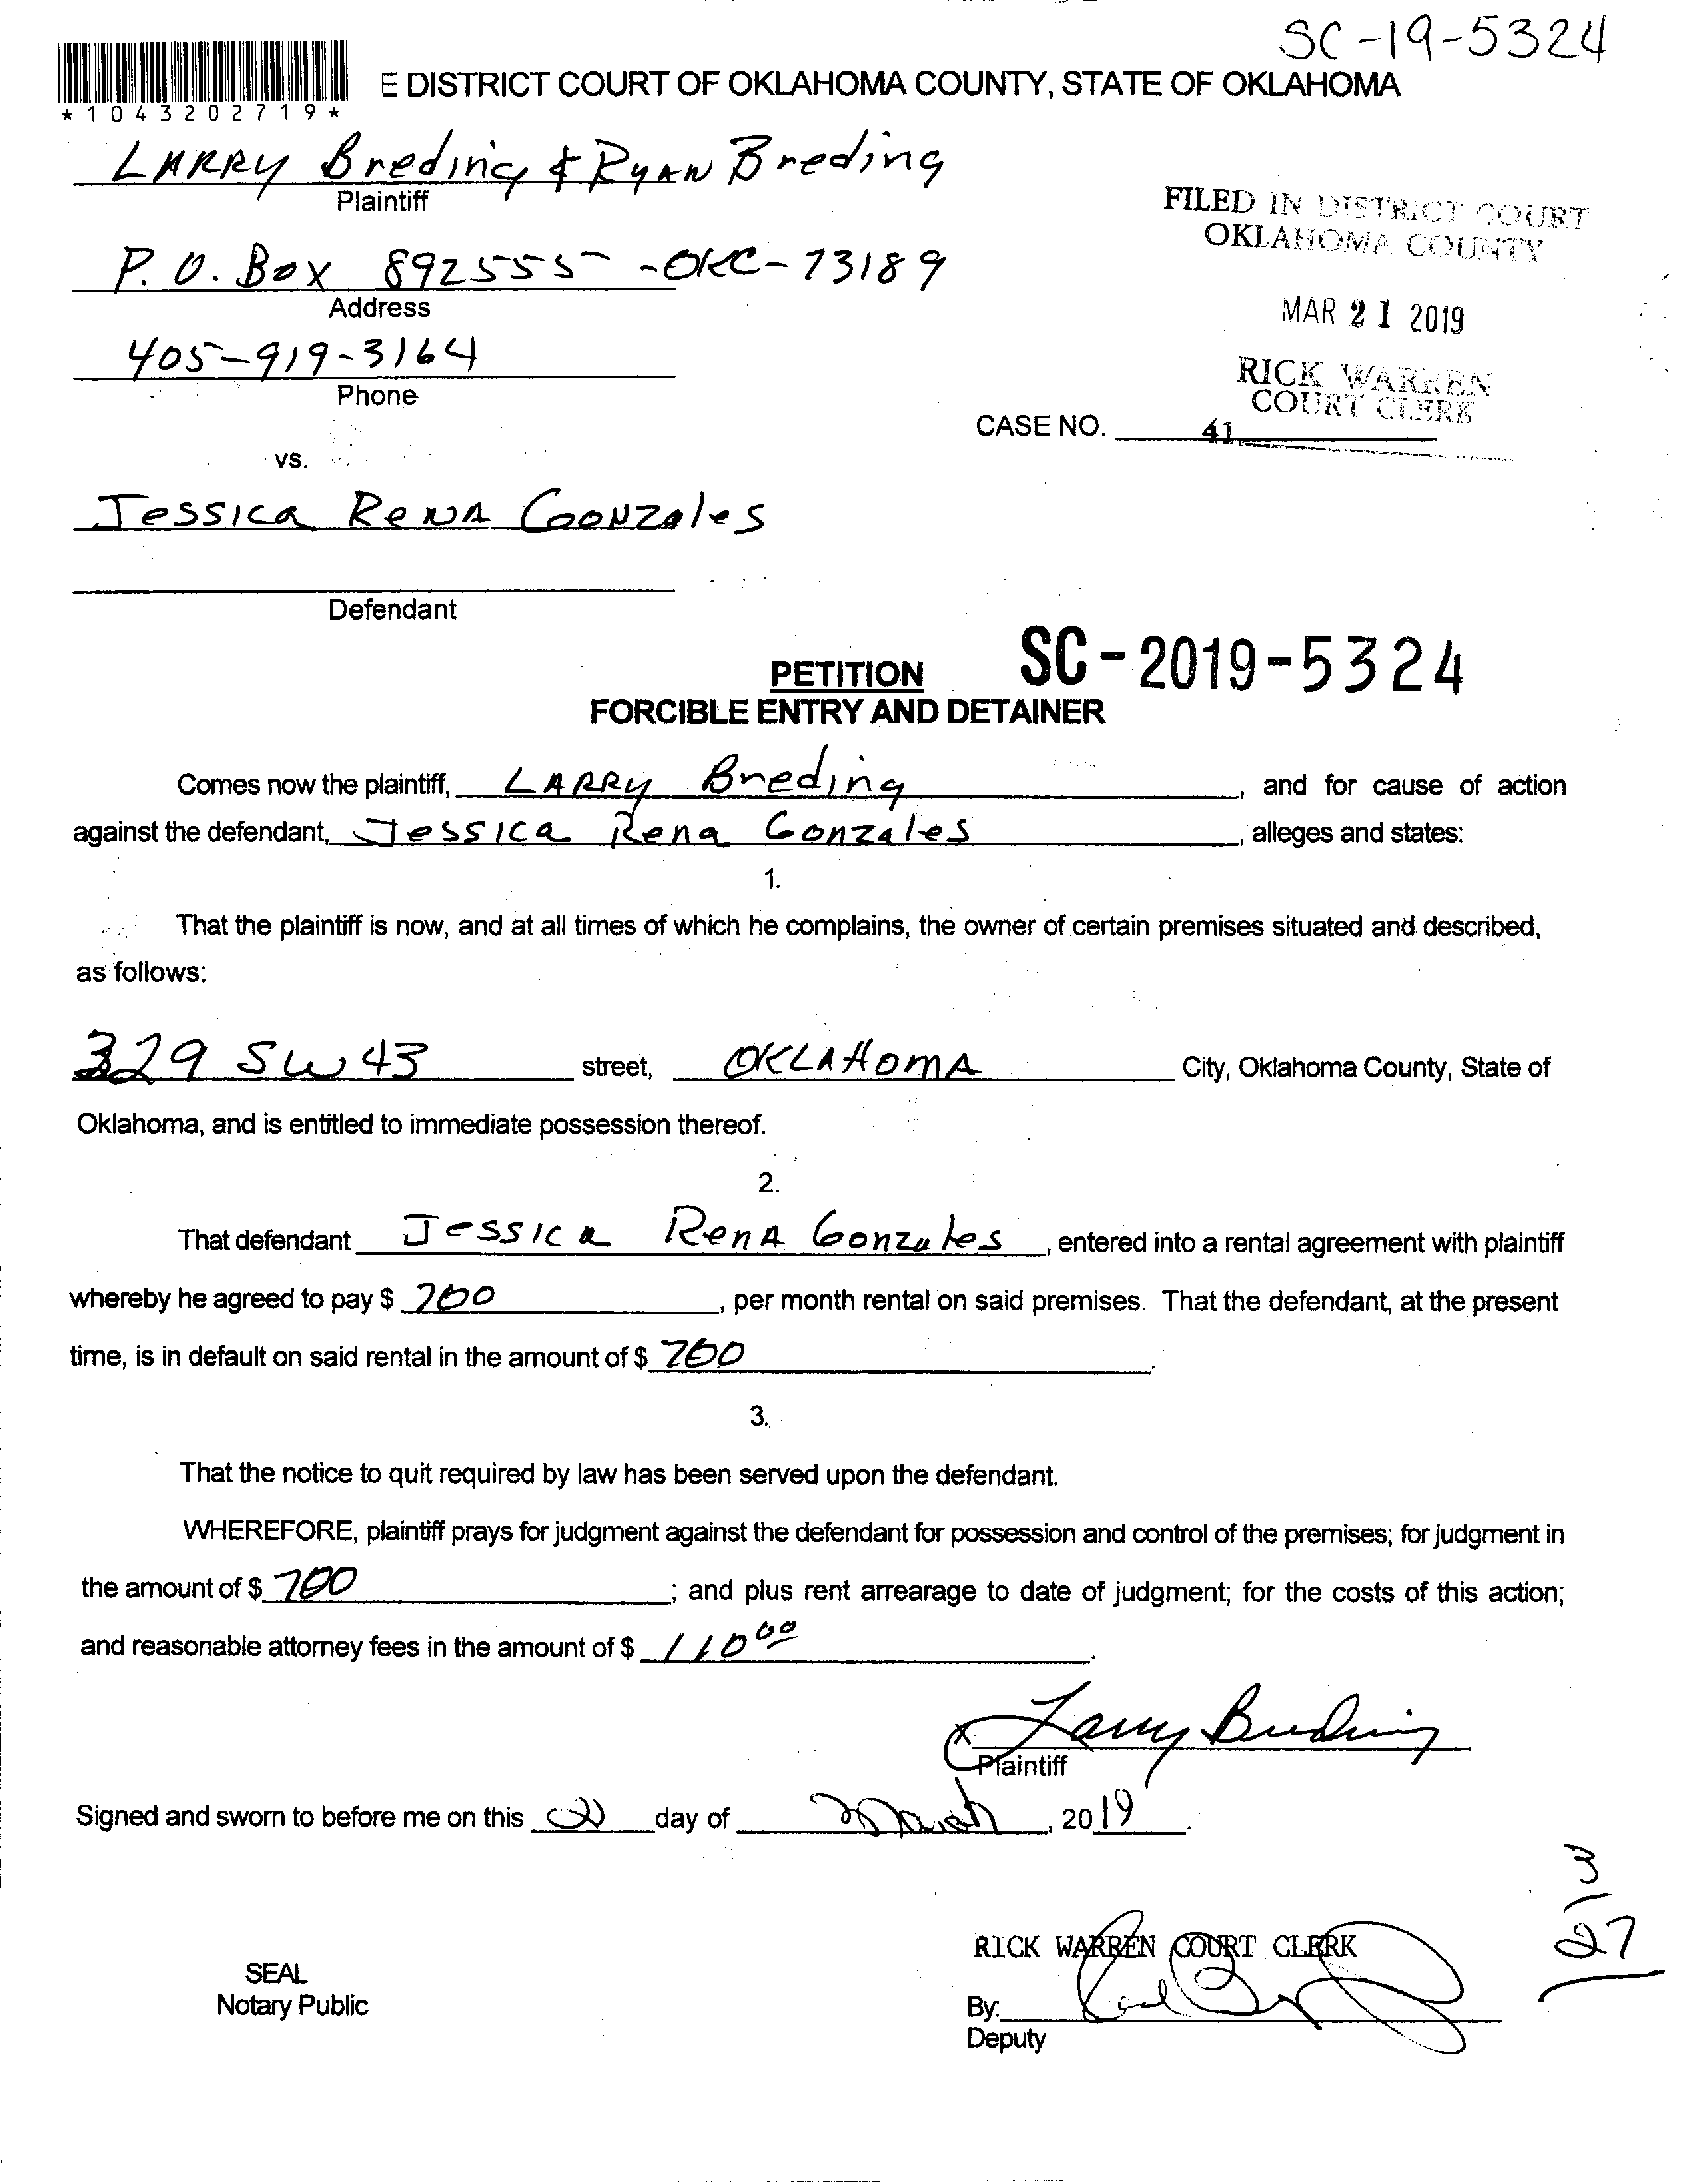 SC-19-5324
E DISTRICT COURT OF OKLAHOMA COUNTY, STATE OF OKLAHOMA
*1043202719*
LARRY Breding & RYAN Breding
Plaintiff
FILED IN DISTRICT COURT
OKLAHOMA COUNTY
P.O. Box 892555 -OKC-73189
Address
MAR 21 2019
405-919-3164
Phone
RICK WARREN
COURT CLERK
CASE NO. 41
vs.
Jessica Rena Gonzales
Defendant
SC-2019-5324
PETITION
FORCIBLE ENTRY AND DETAINER
Comes now the plaintiff, LARRY Breding, and for cause of action
against the defendant, Jessica Rena Gonzales, alleges and states:
1.
That the plaintiff is now, and at all times of which he complains, the owner of certain premises situated and described,
as follows:
329 SW 43 street, OKLAHOMA City, Oklahoma County, State of
Oklahoma, and is entitled to immediate possession thereof.
2.
That defendant Jessica Rena Gonzales, entered into a rental agreement with plaintiff
whereby he agreed to pay $ 700, per month rental on said premises. That the defendant, at the present
time, is in default on said rental in the amount of $ 700.
3.
That the notice to quit required by law has been served upon the defendant.
WHEREFORE, plaintiff prays for judgment against the defendant for possession and control of the premises; for judgment in
the amount of $ 700; and plus rent arrearage to date of judgment; for the costs of this action;
and reasonable attorney fees in the amount of $ 110 00.
X Larry Breding
Plaintiff
Signed and sworn to before me on this 21 day of March, 2019.
3/27
RICK WARREN COURT CLERK
SEAL
Notary Public
By:
Deputy